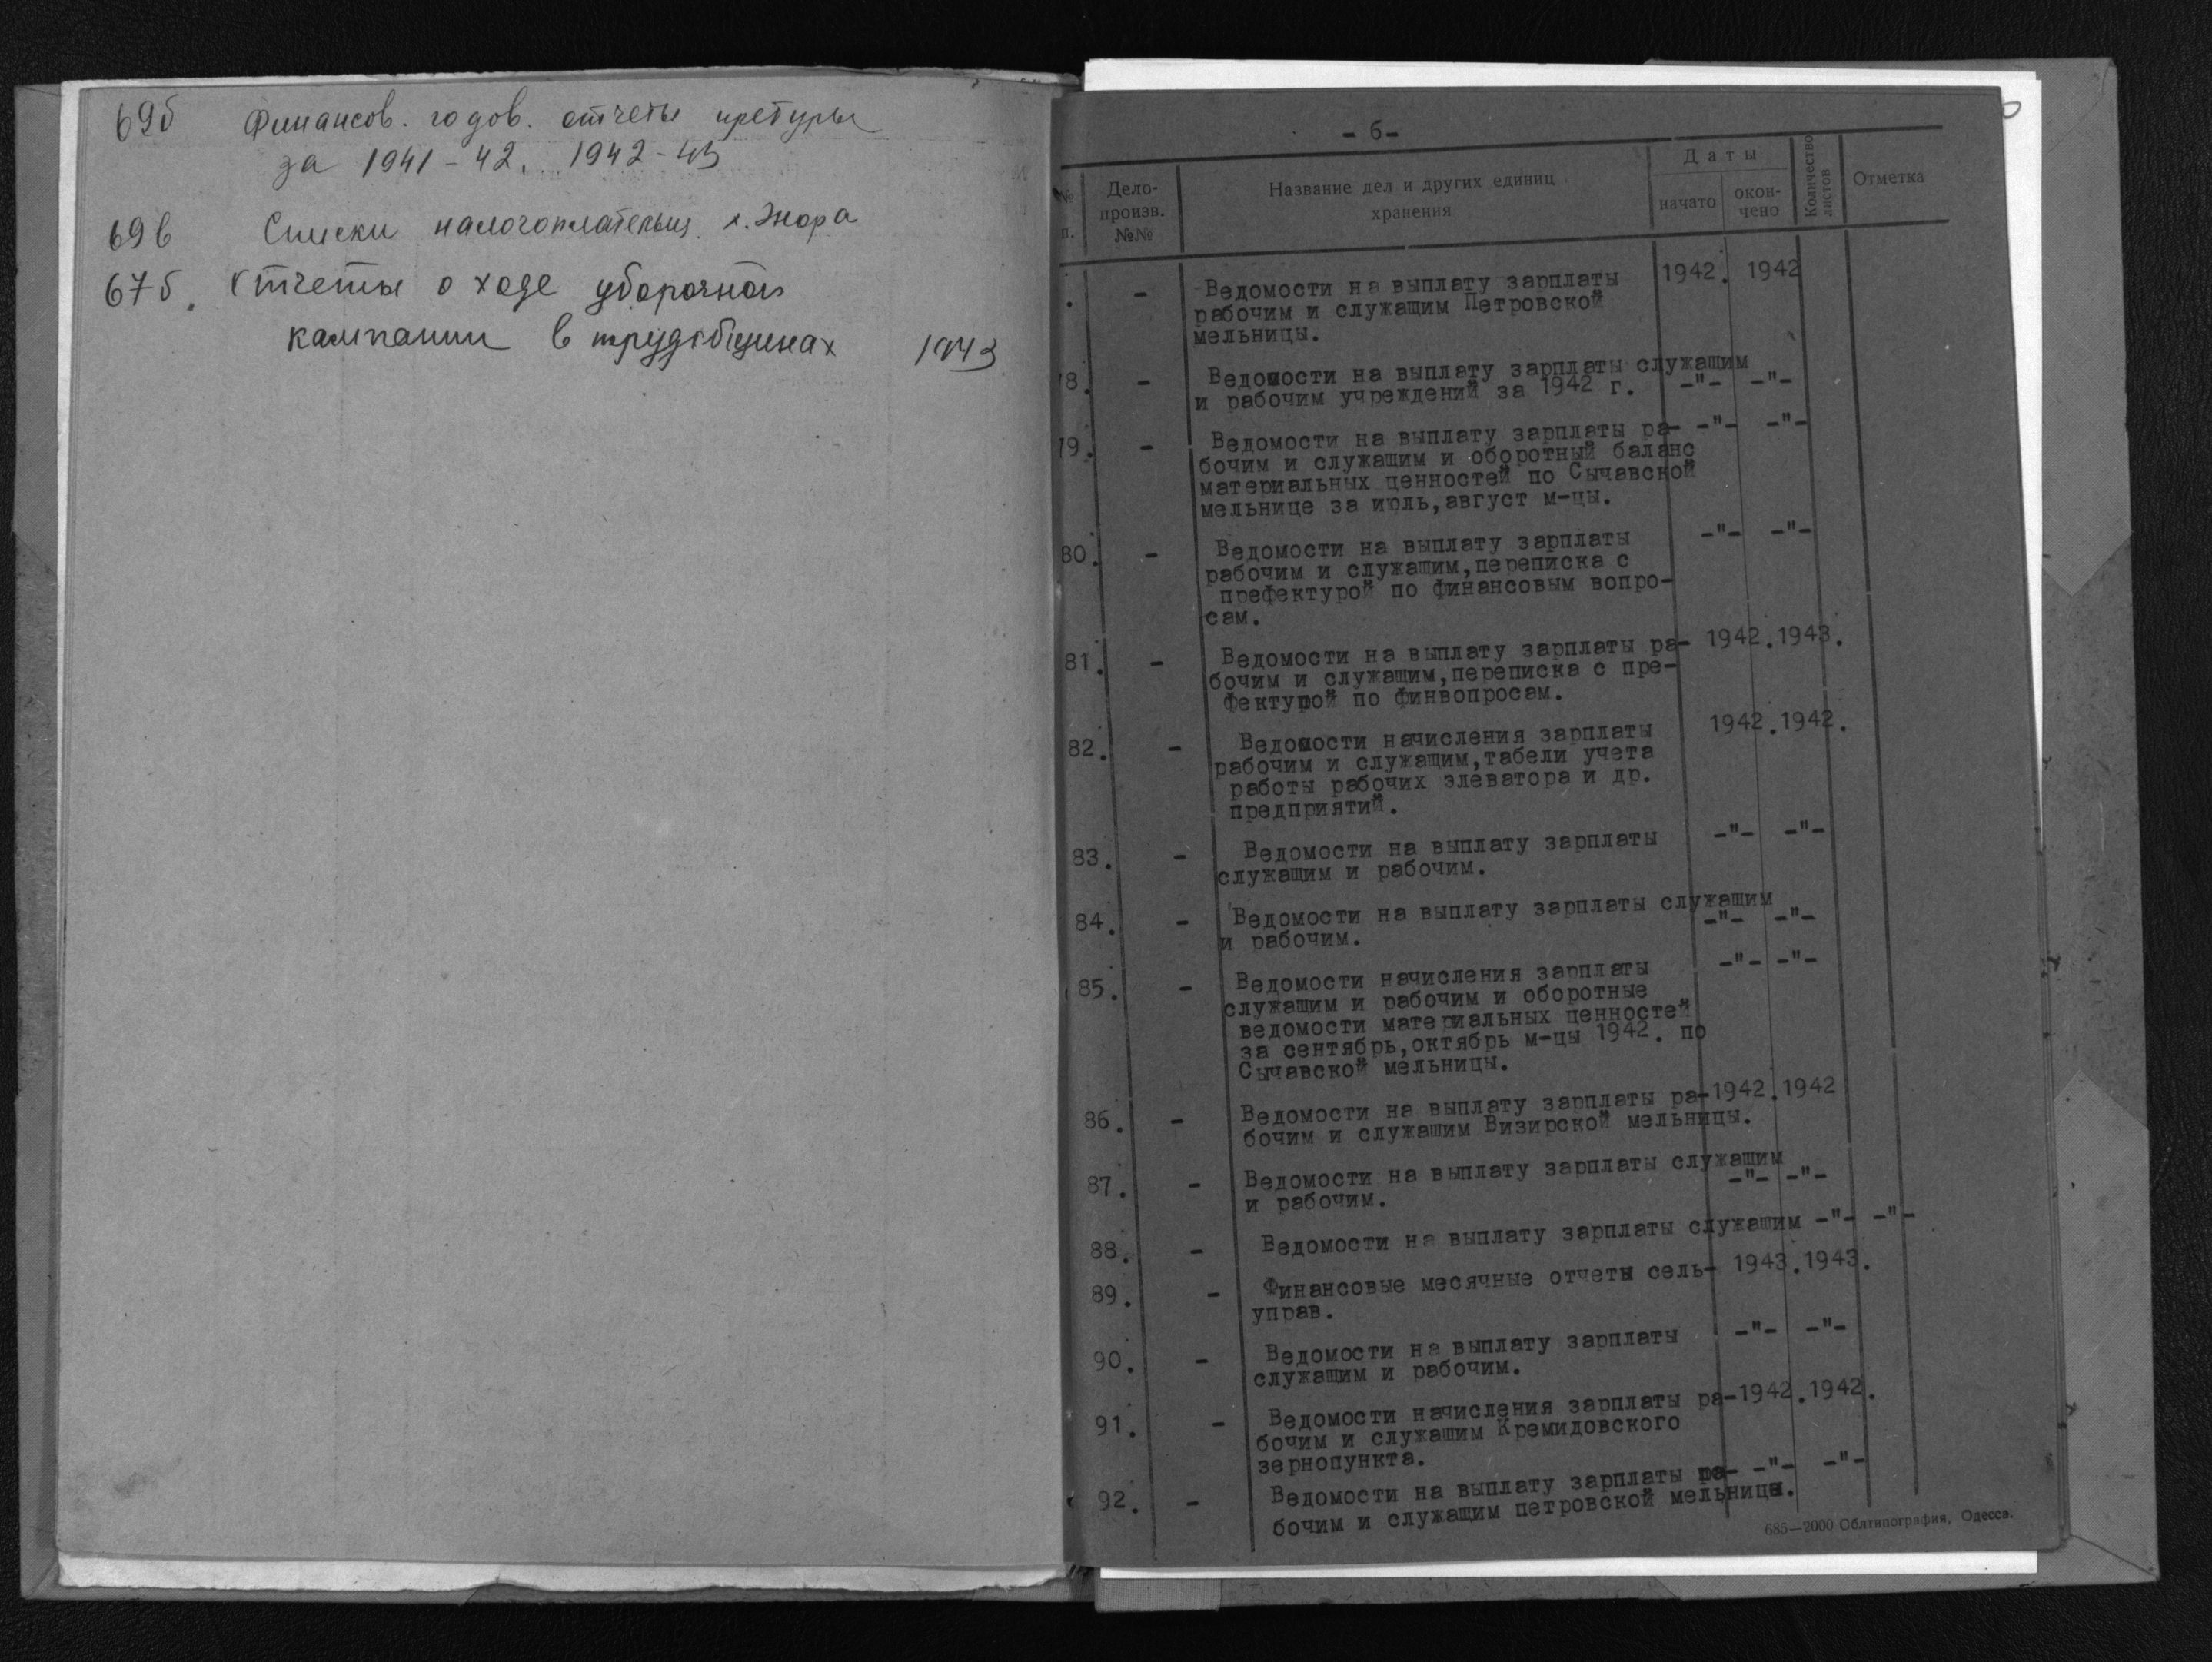 69б Финансов. годов. отчеты претуры
за 1941-42, 1942-43
69в Списки налогоплательщ.
67б. Отчеты о ходе уборочной
кампании в трудобщинах 1943
- 6-
№ п. Дело-произв. №№ Название дел и других единиц хранения Даты начато окон-чено Количество листов Отметка
. - Ведомости на выплату зарплаты 1942. 1942
рабочим и служащим Петровской
мельницы.
78. - Ведомости на выплату зарплаты служащим
и рабочим учреждений за 1942 г. -"- -"-
79. - Ведомости на выплату зарплаты ра- -"- -"-
бочим и служащим и оборотный баланс
материальных ценностей по Сычавской
мельнице за июль,август м-цы.
80. - Ведомости на выплату зарплаты -"- -"-
рабочим и служащим,переписка с
префектурой по финансовым вопро-
сам.
81. - Ведомости на выплату зарплаты ра- 1942.1943.
бочим и служащим,переписка с пре-
фектурой по финвопросам.
82. - Ведомости начисления зарплаты 1942.1942.
рабочим и служащим,табели учета
работы рабочих элеватора и др.
предприятий.
83. - Ведомости на выплату зарплаты -"- -"-
служащим и рабочим.
84. - Ведомости на выплату зарплаты служащим
и рабочим. -"- -"-
85. - Ведомости начисления зарплаты -"- -"-
служащим и рабочим и оборотные
ведомости материальных ценностей
за сентябрь,октябрь м-цы 1942. по
Сычавской мельницы.
86. - Ведомости на выплату зарплаты ра-1942.1942
бочим и служащим Визирской мельницы.
87. - Ведомости на выплату зарплаты служащим
и рабочим. -"- -"-
88. - Ведомости на выплату зарплаты служащим -"- -"-
89. - Финансовые месячные отчеты сель- 1943.1943.
управ.
90. - Ведомости на выплату зарплаты -"- -"-
служащим и рабочим.
91. - Ведомости начисления зарплаты ра-1942.1942.
бочим и служащим Кремидовского
зернопункта.
92. - Ведомости на выплату зарплаты ра- -"- -"-
бочим и служащим петровской мельницы.
685—2000 Облтипография, Одесса.